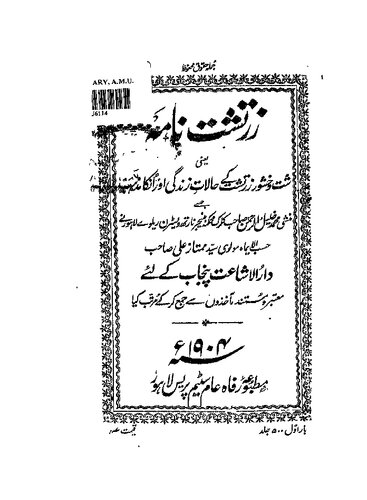 جملہ حقوق محفوظ
ARY, A.M.U.
زرتشت نامہ
یعنی
شت وخشور زرتشت کے حالات زندگی اور انکا مذہب
جسے
منشی محمد خلیل الرحمن صاحب کلرک محکمہ منیجر نارتھ ویسٹرن ریلوے لاہور نے
حسب الایماء مولوی سید ممتاز علی صاحب
دارالاشاعت پنجاب کے لئے
معتبر و مستند ماخذوں سے جمع کر کے مرتب کیا
۱۹۰۴ء
مطبوعہ رفاہ عام سٹیم پریس لاہور
بار اول ۵۰۰ جلد
قیمت